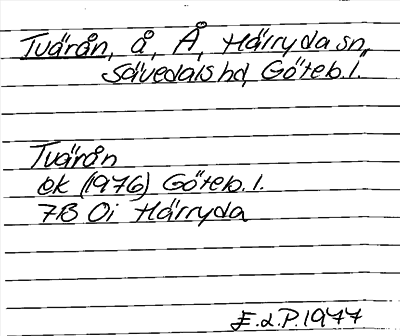 Tvärån, å, Å, Härryda sn,
Sävedals hd, Göteb. l.
Tvärån
ök (1976) Göteb. l.
7B 0i Härryda
E.d.P. 1977